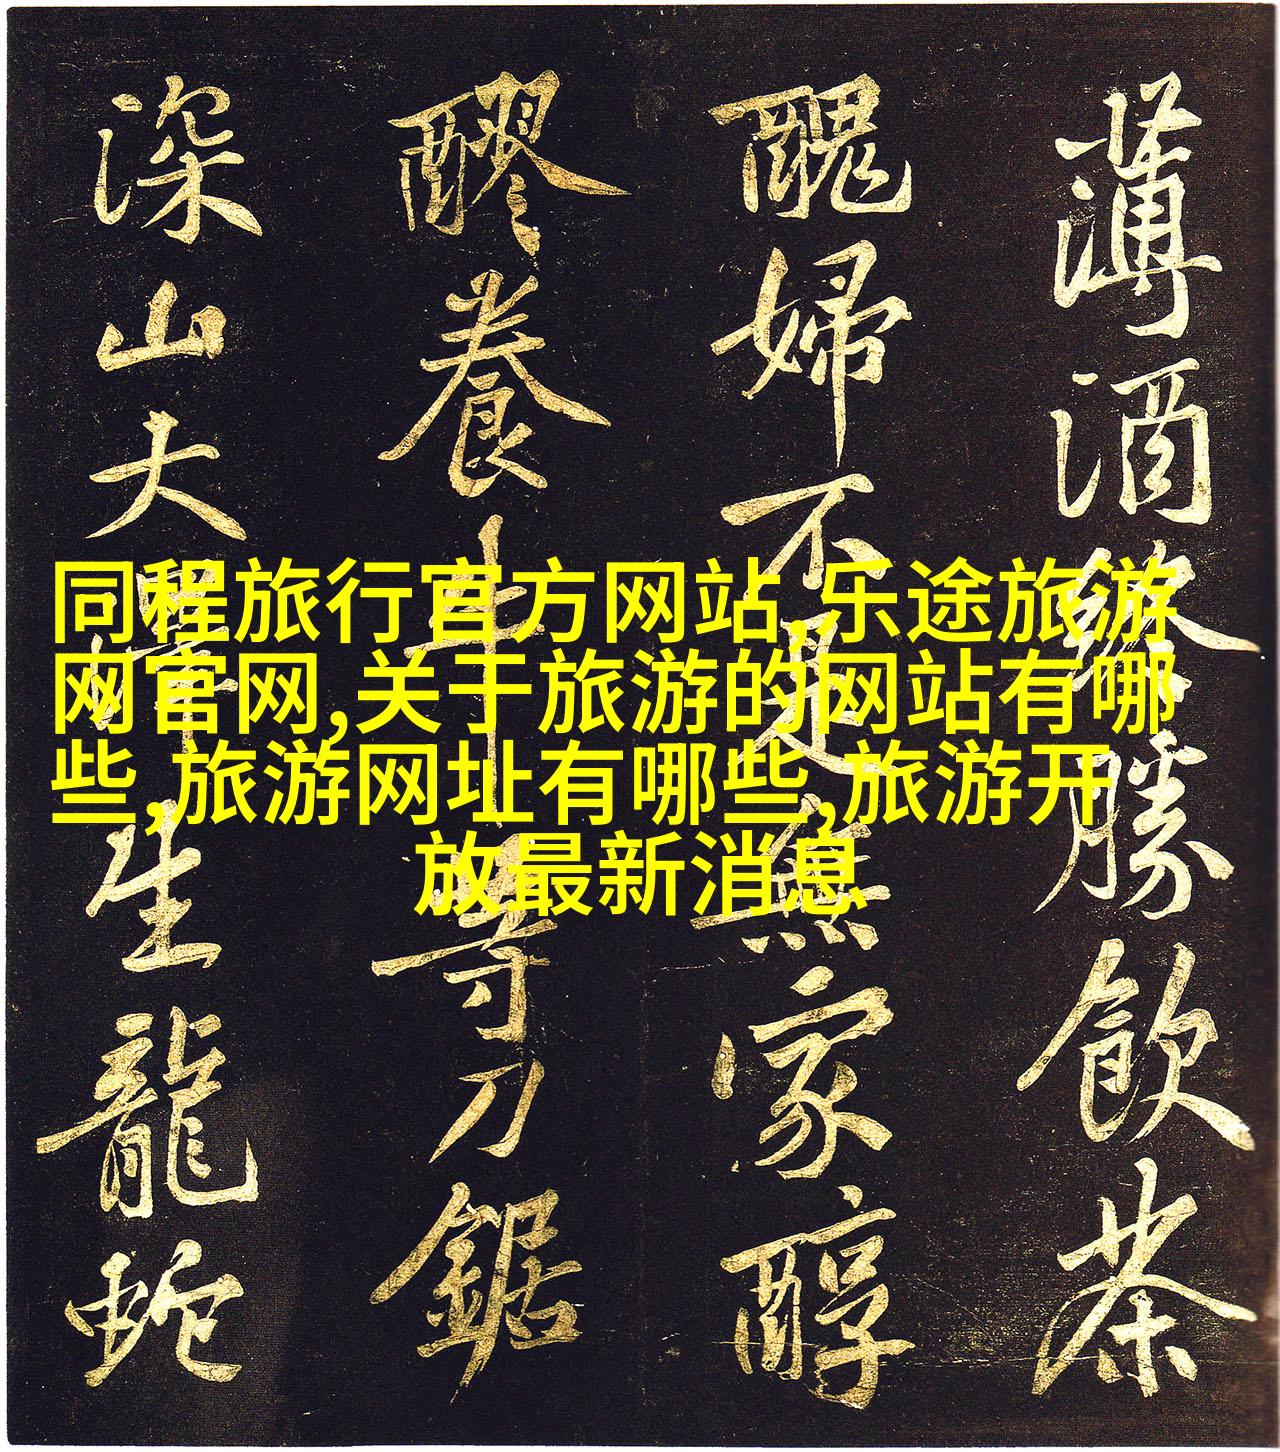 薄酒終勝飲茶
醜婦不是無家醇
醪養牛等刀鋸
深山大澤生龍蛇
同程旅行官方网站,乐途旅游
网官网,关于旅游的网站有哪
些,旅游网址有哪些,旅游开
放最新消息